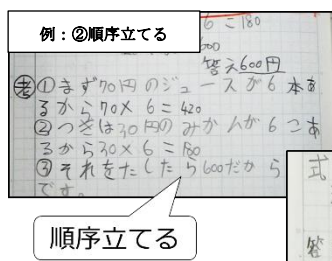 例:②順序立てる
6=180
答え600円
考①まず70円のジュースが6本あ
るから70×6=420
②つぎは30円のみかんが6こあ
るから30×6=180
③それをたしたら600だから
です。
順序立てる
式
答